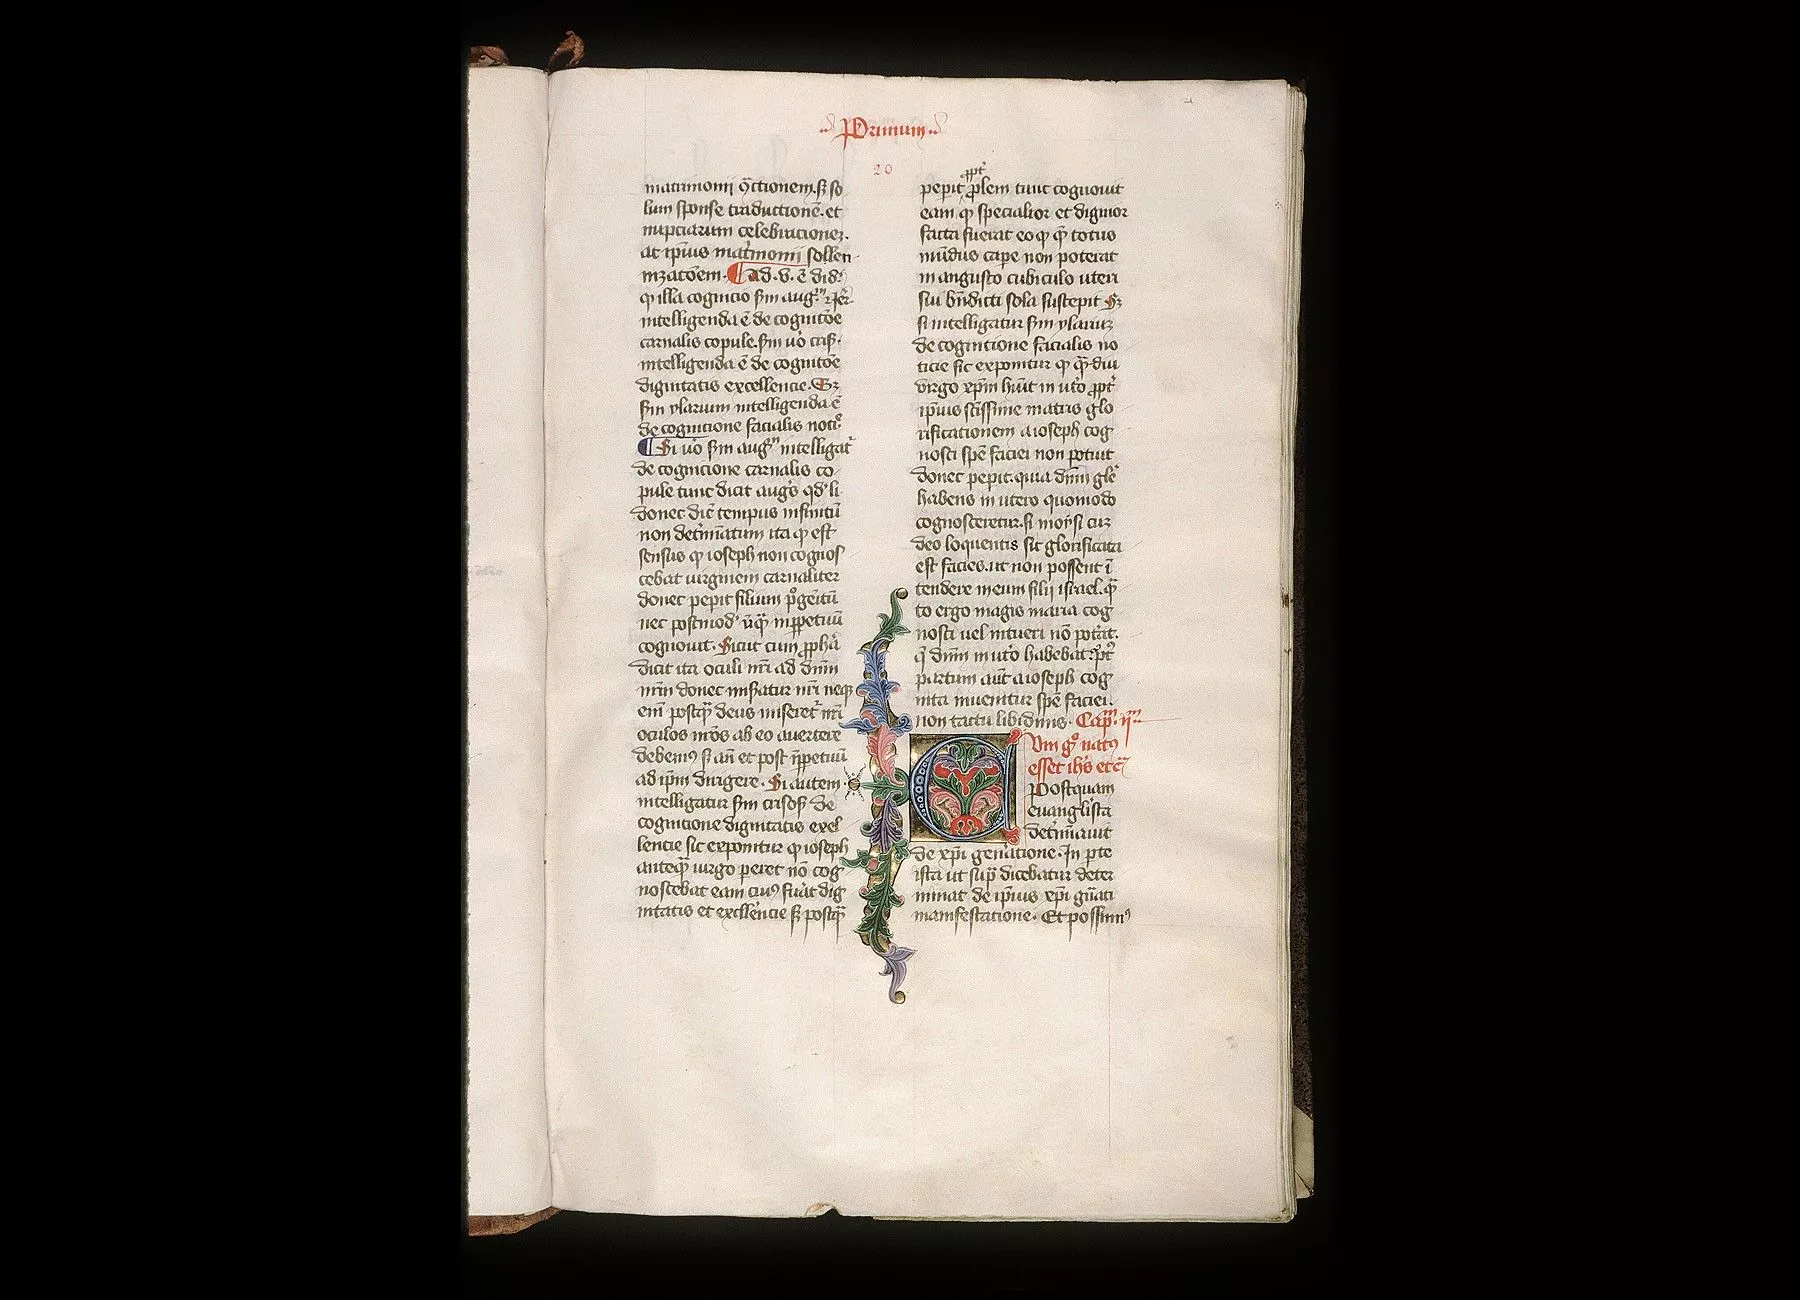 Primum
20
matrimonii ꝯctionem. sꝫ so
lum sponse traductionē. et
nupciarum celebracionez.
at ip̄ius mat̓monii sollen
nizatōem. ad. v. ē dd̓:
ꝙ illa cognicio sm̄ aug.
intelligenda ē de cognitōe
carnalis copule. sm̄ uo cris.
intelligenda ē de cognitōe
dignitatis excellencie. Sꝫ
sm̄ ylarium intelligenda ē
de cognicione facialis noti
Si uo sm̄ aug intelligat᷑
de cognicione carnalis co
pule tunc dicit augs qd li
donec dic̄ tempus infinitū
non det̓minatum ita ꝙ est
sensus ꝙ ioseph non cognos
cebat uirginem carnaliter
donec pepit filium p̄genitū
nec postmod̓ ūqꝫ inꝑpetuū
cognouit. Sicut cum ꝓpha
dicit ita oculi nr̄i ad dnm̄
nr̄m donec misatur nr̄i neqꝫ
eni postqꝫ deus miseret᷑ nr̄i
oculos nr̄os ab eo auertere
debemꝰ sꝫ an̄ et post inꝑpetuū
ad ip̄m dirigere. Si autem
intelligatur sm̄ crisos de
cognicione dignitatis exel
lencie sic exponitur ꝙ ioseph
anteqꝫ uirgo peret nō cog
noscebat eam eiuꝰ fuāt dig
nitatis et excllēncie sꝫ postqꝫ
ꝓpt̓
pepit ꝓlem tunc cognouit
eam ꝙ specialior et dignior
facta fuerat eo ꝙ qꝫ totus
mūdus cape non poterat
in angusto cubiculo uteri
sui bn̄dicti sola suscepit Sꝫ
si intelligatur sm̄ ylariuꝫ
de cognicione facialis no
ticie sic exponitur ꝙ qꝫ. diu
uirgo xp̄m hūit in ut̓o ꝓpt̓
ip̄ius sc̄issime matris glo
rificationem a ioseph cog
nosci spē faciei non potuit
donec pepit. quia dnm̄ glē
habens in utero quomodo
cognosceretur. si moysi cuꝫ
deo loquentis sic glorificata
est facies. ut non possent ī
tendere in eum filii israel. qꝫ
to ergo magis maria cog
nosci uel intueri nō pot̓at.
q̄ dnm̄ in ut̓o habebat. pt̓
partum aūt a ioseph cog
nita inuenitur spē faciei.
non tactu libidinis. Capm̄. ijm̄.
Um gͦ natꝰ
esset ih̄s etc̄
Postquam
euanglista
det̓minauit
de xp̄i gen̓atione. In p̄te
ista ut sup̄ dicebatur deter
minat de ip̄ius xp̄i gn̄ati
manifestatione. Et possimꝰ